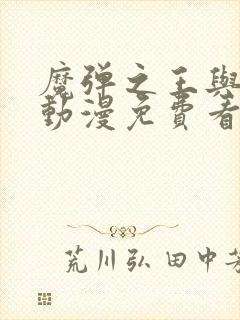 魔弹之王與
動漫免費看
荒川弘 田中芳